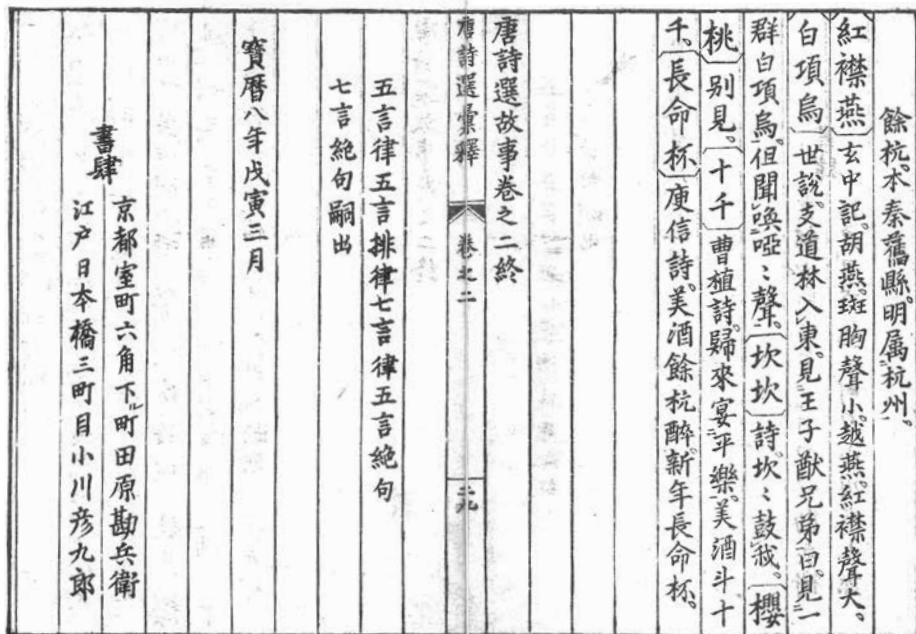 餘杭。本秦舊縣。明属杭州。
紅襟燕 玄中記。胡燕。斑胸聲小。越燕。紅襟聲大。
白項烏 世說。支道林入東。見王子猷兄弟曰。見一
群白項烏。但聞喚啞〻聲。坎坎 詩。坎〻鼓我。櫻
桃 別見。十千 曹植詩。歸來宴平樂。美酒斗十
千。長命杯 庾信詩。美酒餘杭醉。新年長命杯。
唐詩選故事卷之二終
唐詩選彙釋 卷之二 二九
五言律五言排律七言律五言絶句
七言絶句嗣出
寶暦八年戊寅三月
書肆
京都室町六角下ル町田原勘兵衛
江戸日本橋三町目小川彦九郎